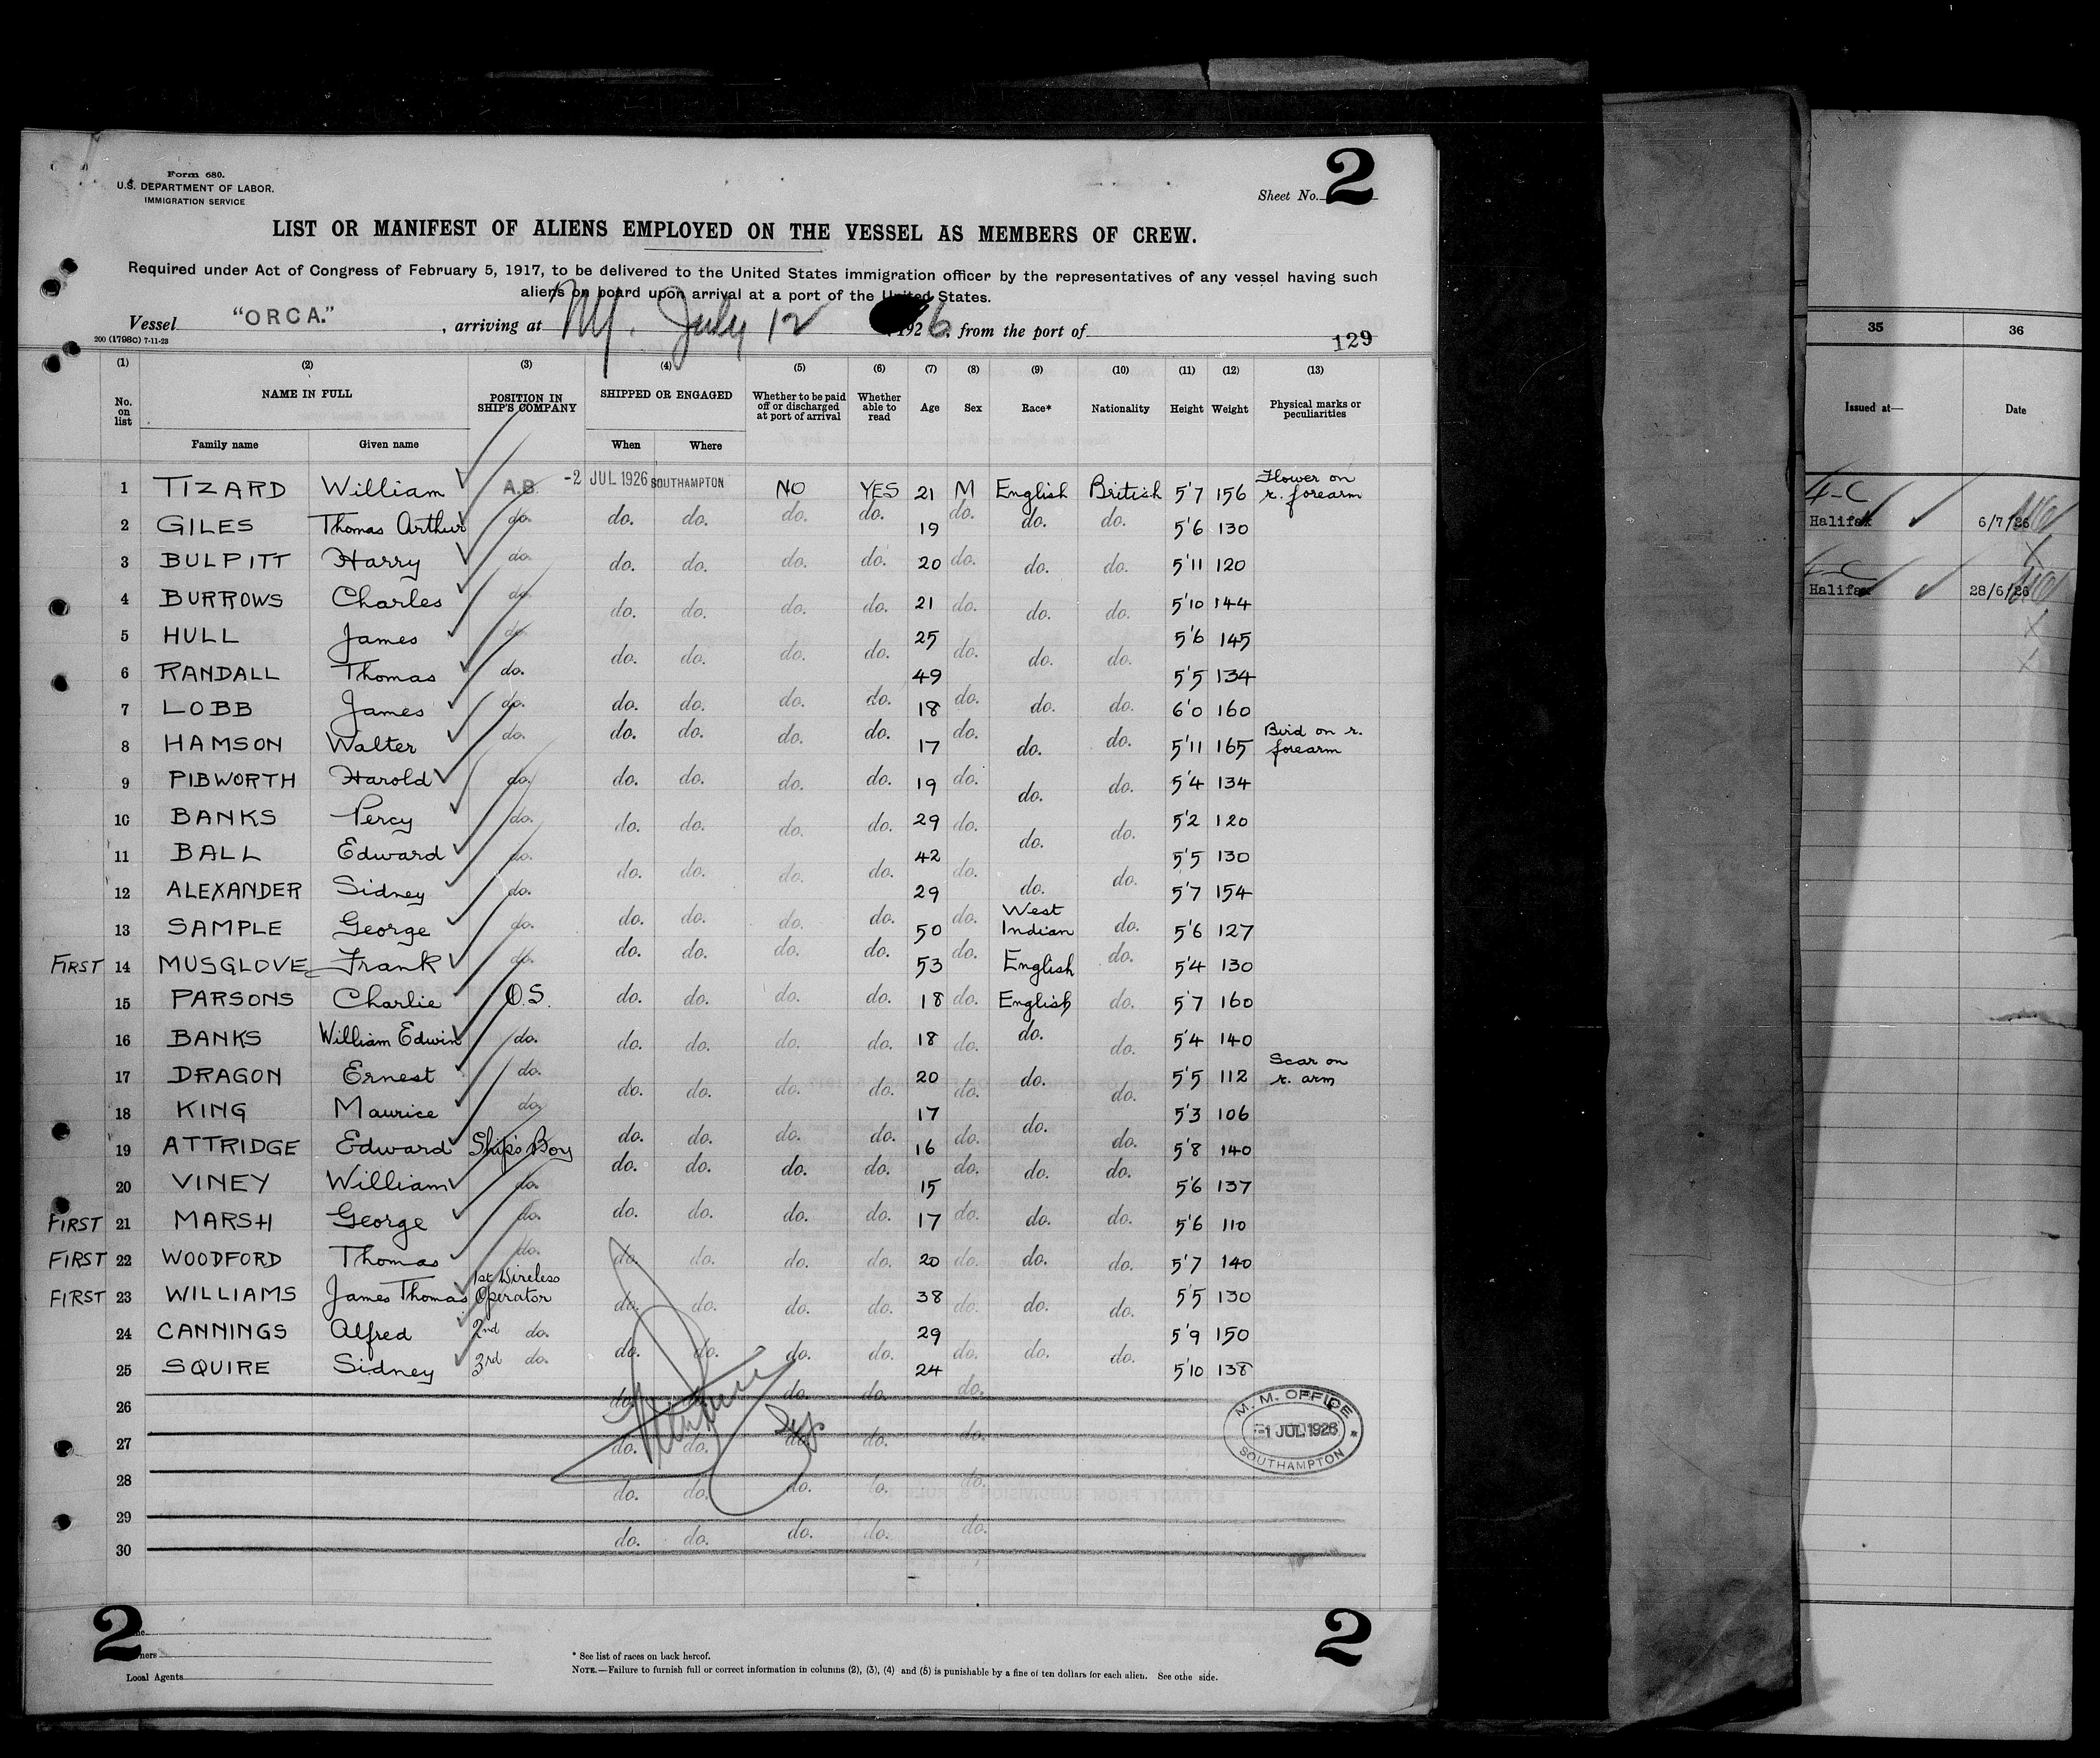 Form 680.
U.S. DEPARTMENT OF LABOR.
IMMIGRATION SERVICE
Sheet No. 2
LIST OR MANIFEST OF ALIENS EMPLOYED ON THE VESSEL AS MEMBERS OF CREW.
Required under Act of Congress of February 5, 1917, to be delivered to the United States immigration officer by the representatives of any vessel having such
aliens on board upon arrival at a port of the United States.
Vessel "ORCA.", arriving at NY. July 12 1926 from the port of
200 (1798C) 7-11-23
129
(1) (2) (3) (4) (5) (6) (7) (8) (9) (10) (11) (12) (13)
No. on list NAME IN FULL POSITION IN SHIP'S COMPANY SHIPPED OR ENGAGED Whether to be paid off or discharged at port of arrival Whether able to read Age Sex Race* Nationality Height Weight Physical marks or peculiarities
Family name Given name When Where
1 TIZARD William A.B. -2 JUL 1926 SOUTHAMPTON NO YES 21 M English British 5'7 156 Flower on r. forearm
2 GILES Thomas Arthur do. do. do. do. do. 19 do. do. do. 5'6 130
3 BULPITT Harry do. do. do. do. do. 20 do. do. do. 5'11 120
4 BURROWS Charles do. do. do. do. do. 21 do. do. do. 5'10 144
5 HULL James do. do. do. do. do. 25 do. do. do. 5'6 145
6 RANDALL Thomas do. 49 5'5 134
7 LOBB James do. do. do. do. do. 18 do. do. do. 6'0 160
8 HAMSON Walter do. do. do. do. do. 17 do. do. do. 5'11 165 Bird on r. forearm
9 PIBWORTH Harold do. do. do. do. do. 19 do. do. do. 5'4 134
10 BANKS Percy do. do. do. do. do. 29 do. do. do. 5'2 120
11 BALL Edward do. do. do. do. do. 42 do. do. do. 5'5 130
12 ALEXANDER Sidney do. 29 do. 5'7 154
13 SAMPLE George do. do. do. do. do. 50 do. West Indian do. 5'6 127
FIRST 14 MUSGLOVE Frank do. do. do. do. do. 53 do. English do. 5'4 130
15 PARSONS Charlie O.S. do. do. do. do. 18 do. English do. 5'7 160
16 BANKS William Edwin do. do. do. do. do. 18 do. do. do. 5'4 140
17 DRAGON Ernest do. do. do. do. do. 20 do. do. do. 5'5 112 Scar on r. arm
18 KING Maurice do. 17 5'3 106
19 ATTRIDGE Edward Ship's Boy do. do. do. do. 16 do. do. do. 5'8 140
20 VINEY William do. do. do. do. do. 15 do. do. do. 5'6 137
FIRST 21 MARSH George do. do. do. do. do. 17 do. do. do. 5'6 110
FIRST 22 WOODFORD Thomas do. do. do. do. do. 20 do. do. do. 5'7 140
FIRST 23 WILLIAMS James Thomas 1st Wireless Operator do. do. do. do. 38 do. do. do. 5'5 130
24 CANNINGS Alfred 2nd do. 29 5'9 150
25 SQUIRE Sidney 3rd do. do. do. do. do. 24 do. do. do. 5'10 138
26 do. do. do. do. do.
27 do. do. do. do. do.
28 do. do. do. do. do.
29 do. do. do. do. do.
30
M. M. OFFICE
-1 JUL 1926
SOUTHAMPTON
2
2
Local Agents
* See list of races on back hereof.
NOTE.—Failure to furnish full or correct information in columns (2), (3), (4) and (5) is punishable by a fine of ten dollars for each alien. See othe side.
35 36
Issued at— Date
4-C
Halifax 6/7/26
Halifax 28/6/26